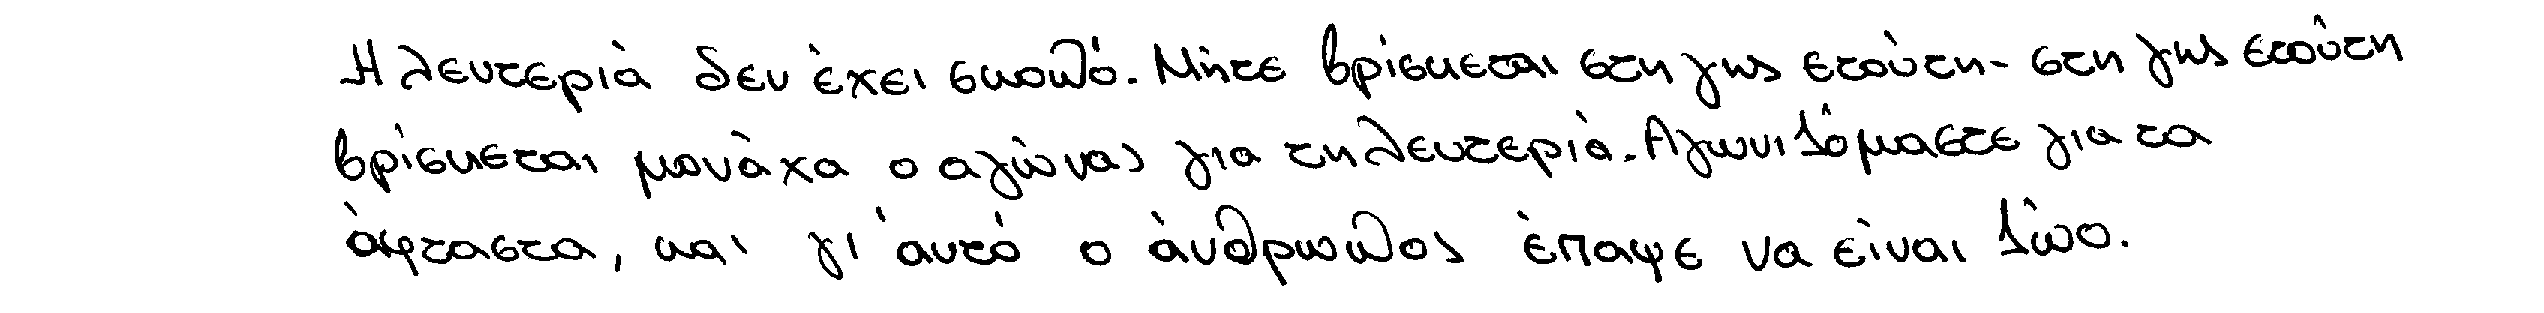 Η λευτεριά δεν έχει σκοπό. Μήτε βρίσκεται στη γης ετούτη- στη γης ετούτη
βρίσκεται μονάχα ο αγώνας για τη λευτεριά. Αγωνιζόμαστε για τα
άφταστα, και γι' αυτό ο άνθρωπος έπαψε να είναι ζώο.